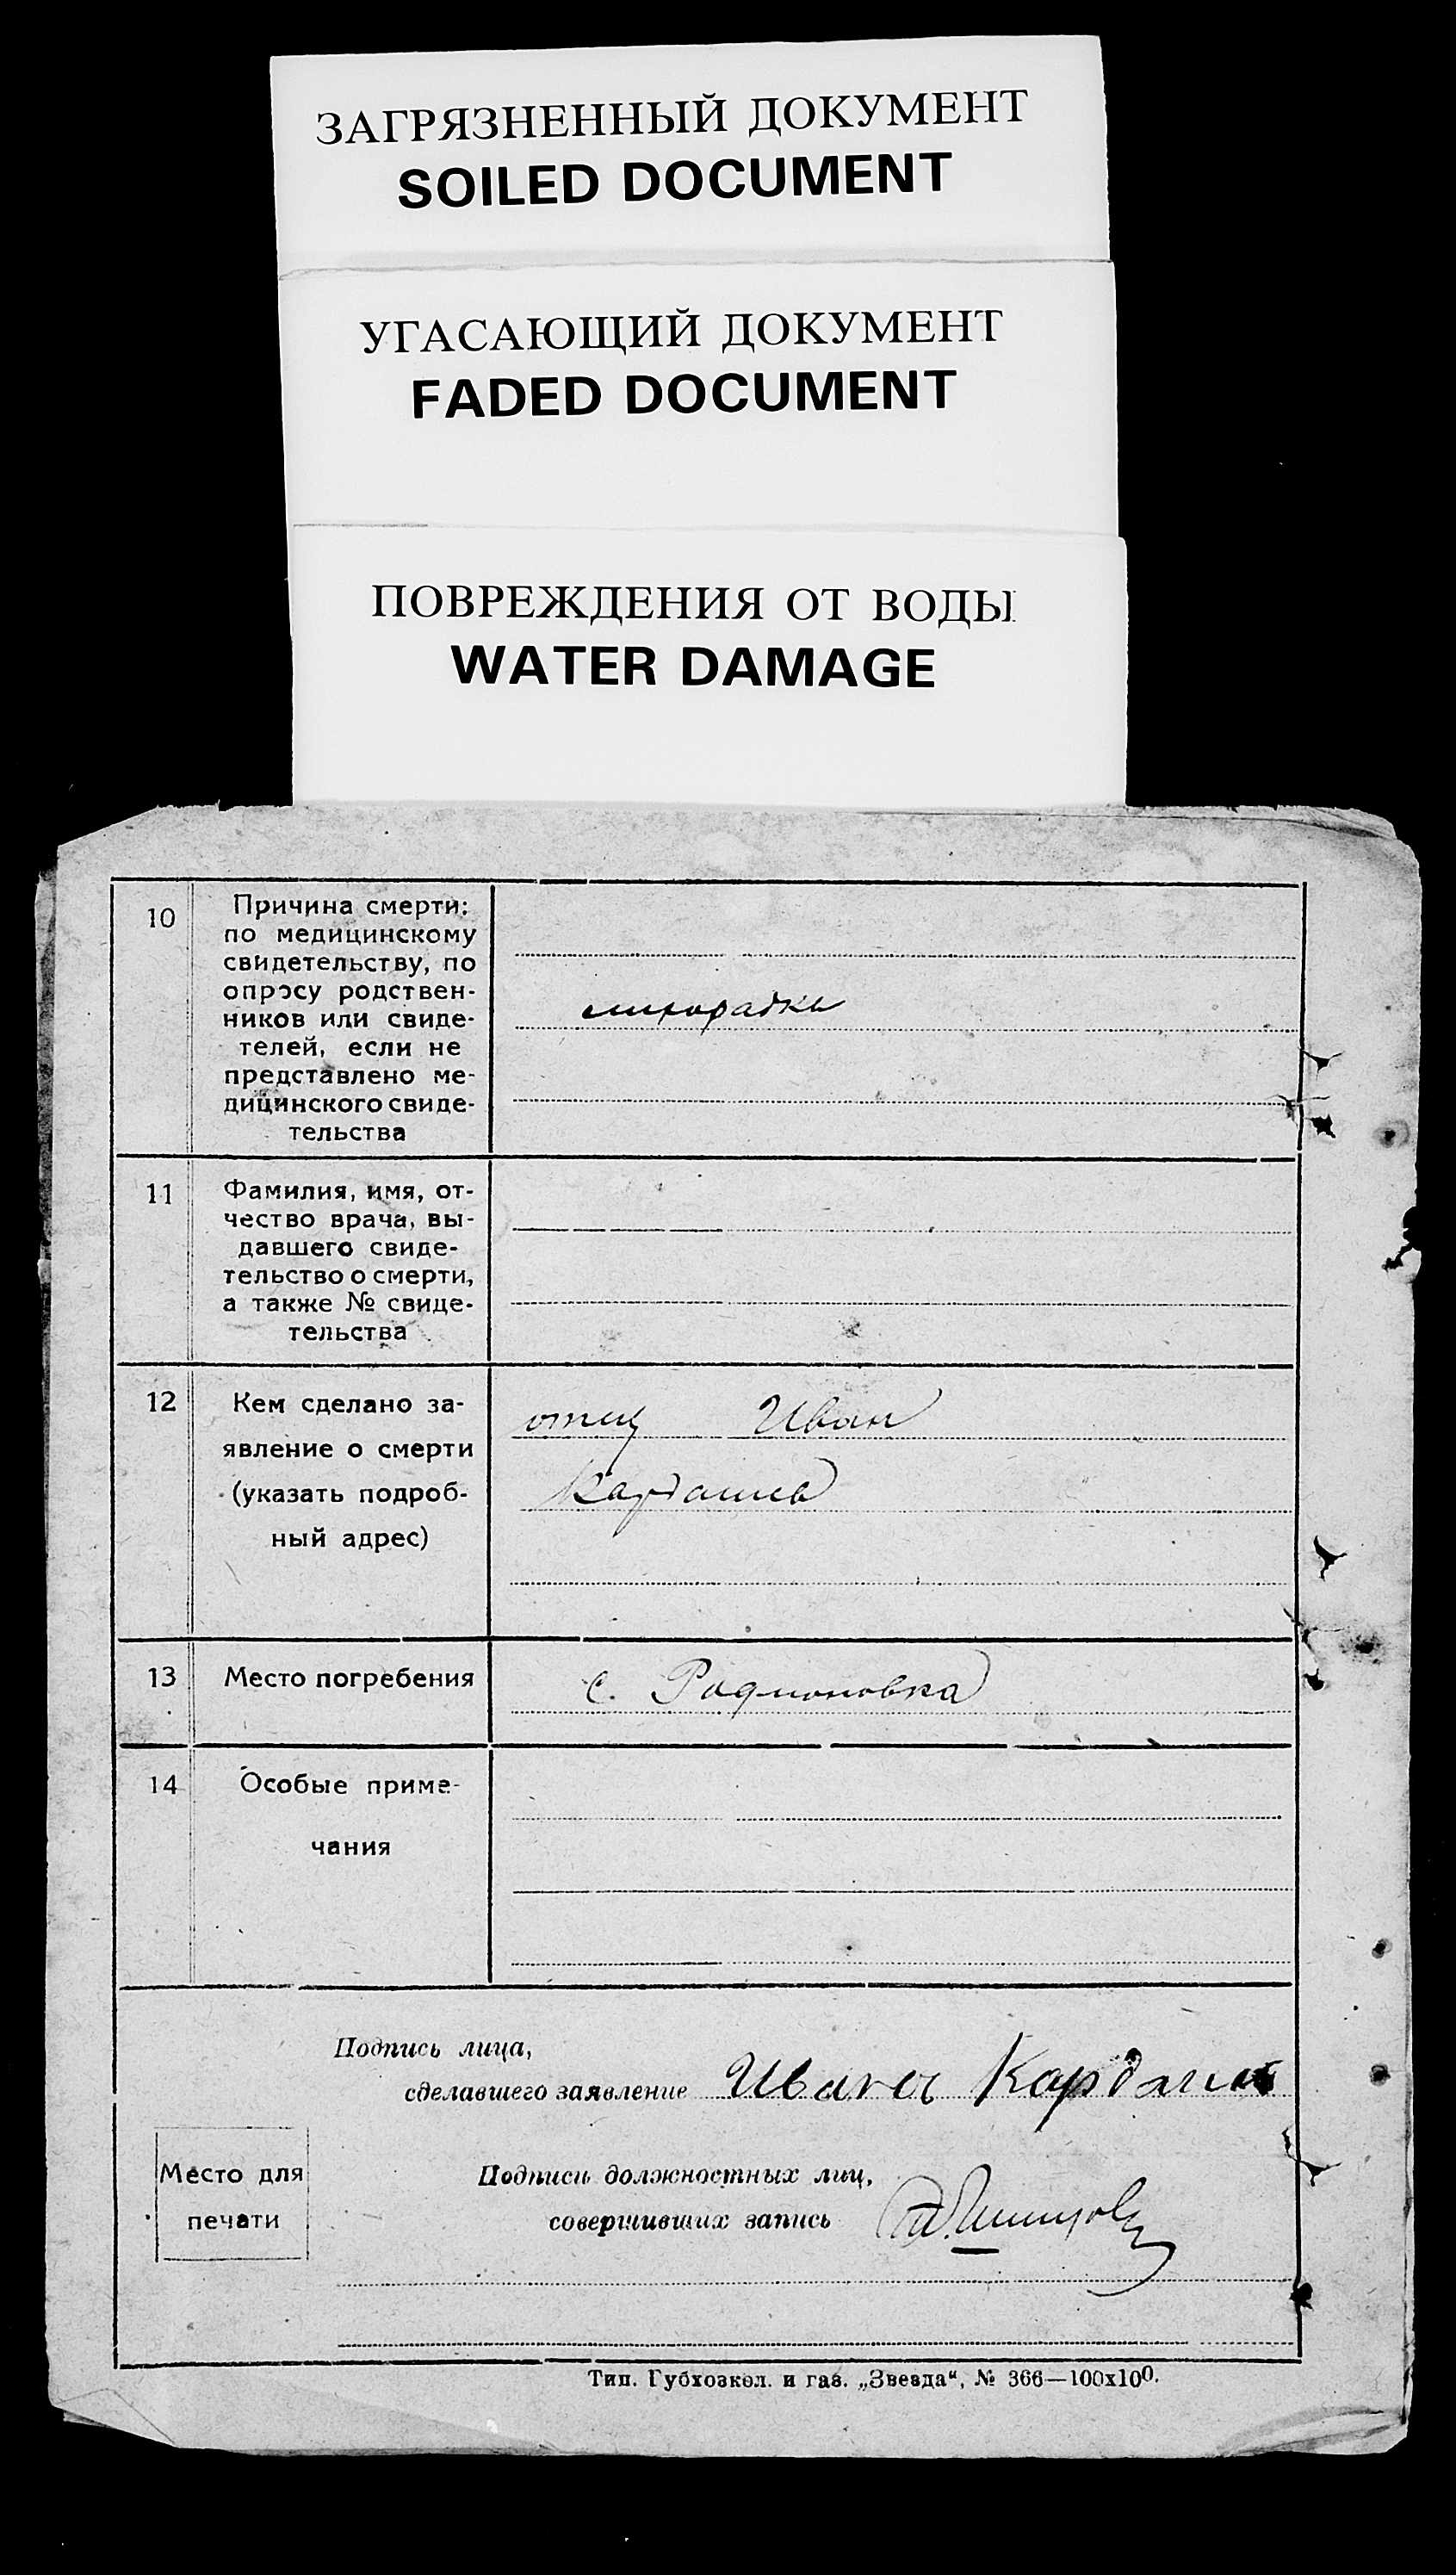 ЗАГРЯЗНЕННЫЙ ДОКУМЕНТ
SOILED DOCUMENT
УГАСАЮЩИЙ ДОКУМЕНТ
FADED DOCUMENT
ПОВРЕЖДЕНИЯ ОТ ВОДЫ
WATER DAMAGE
10
Причина смерти:
по медицинскому
свидетельству, по
опросу родствен-
ников или свиде-
телей, если не
представлено ме-
дицинского свиде-
тельства
лихорадка
11
Фамилия, имя, от-
чество врача, вы-
давшего свиде-
тельство о смерти,
а также № свиде-
тельства
12
Кем сделано за-
явление о смерти
(указать подроб-
ный адрес)
отец Иван
Кардашев
13
Место погребения
с. Родионовка
14
Особые приме-
чания
Подпись лица,
сделавшего заявление
Место для
печати
Подписи должностных лиц,
совершивших запись
Тип. Губхозкол. и газ. „Звезда“, № 366—100х100.